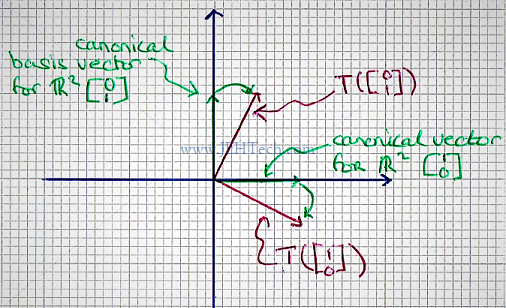 canonical
basis vector
for ℝ² [0 1]
T([0 1])
www.JPHTech.com
canonical vector
for ℝ² [1 0]
T([1 0])